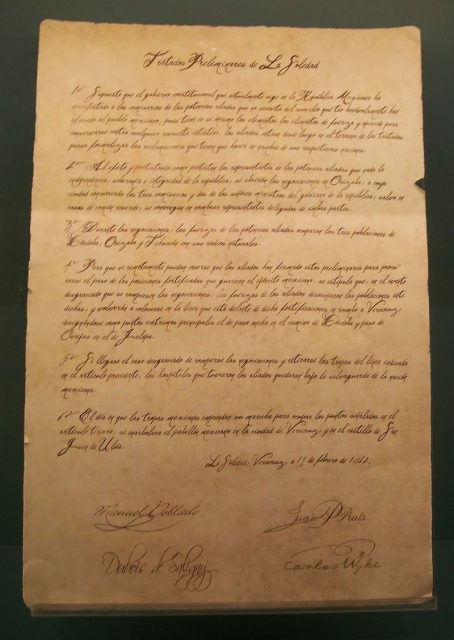 Tratados Preliminares de La Soledad
1º Supuesto que el gobierno constitucional que actualmente rige en la República Mexicana ha
manifestado a los comisarios de las potencias aliadas que no necesita del auxilio que tan benévolamente han
ofrecido al pueblo mexicano, pues tiene en sí mismo los elementos de fuerza y opinión para
conservarse contra cualquier revuelta intestina, los aliados entran desde luego en el terreno de los tratados
para formalizar las reclamaciones que tienen que hacer en nombre de sus respectivas naciones.
2º Al efecto y protestando como protestan los representantes de las potencias aliadas que nada la
independencia, soberanía e integridad de la república, se abrirán las negociaciones en Orizaba, a cuya
ciudad concurrirán los tres comisarios y dos de los señores ministros del gobierno de la república, salvo en
caso de común acuerdo, se convenga en nombrar representantes delegados de ambas partes.
3º Durante las negociaciones, las fuerzas de las potencias aliadas ocuparán las tres poblaciones de
Córdoba, Orizaba y Tehuacán con sus radios naturales.
4º Para que ni remotamente pueda creerse que los aliados han firmado estos preliminares para procu-
rarse el paso de las posiciones fortificadas que guarnece el ejército mexicano, se estipula que, en el evento
desgraciado que se rompiesen las negociaciones, las fuerzas de los aliados desocuparán las poblaciones antes
dichas, y volverán a colocarse en la línea que está delante de dichas fortificaciones, en rumbo a Veracruz,
designándose como puntos extremos principales el de paso ancho en el camino de Córdoba y paso de
Ovejas en el de Jalapa.
5º Si llegase el caso desgraciado de romperse las negociaciones y retirarse las tropas del línea indicada
en el artículo precedente, los hospitales que tuvieren los aliados quedarán bajo la salvaguardia de la nación
mexicana.
El día en que las tropas mexicanas emprendan su marcha para ocupar los puntos señalados en el
artículo tercero, se enarbolará el pabellón mexicano en la ciudad de Veracruz, y en el castillo de San
Juan de Ulúa.
La Soledad, Veracruz, a 19 de febrero de 1862.
Manuel Doblado
Juan P Prats
Dubois de Saligny
Carlos Wyke